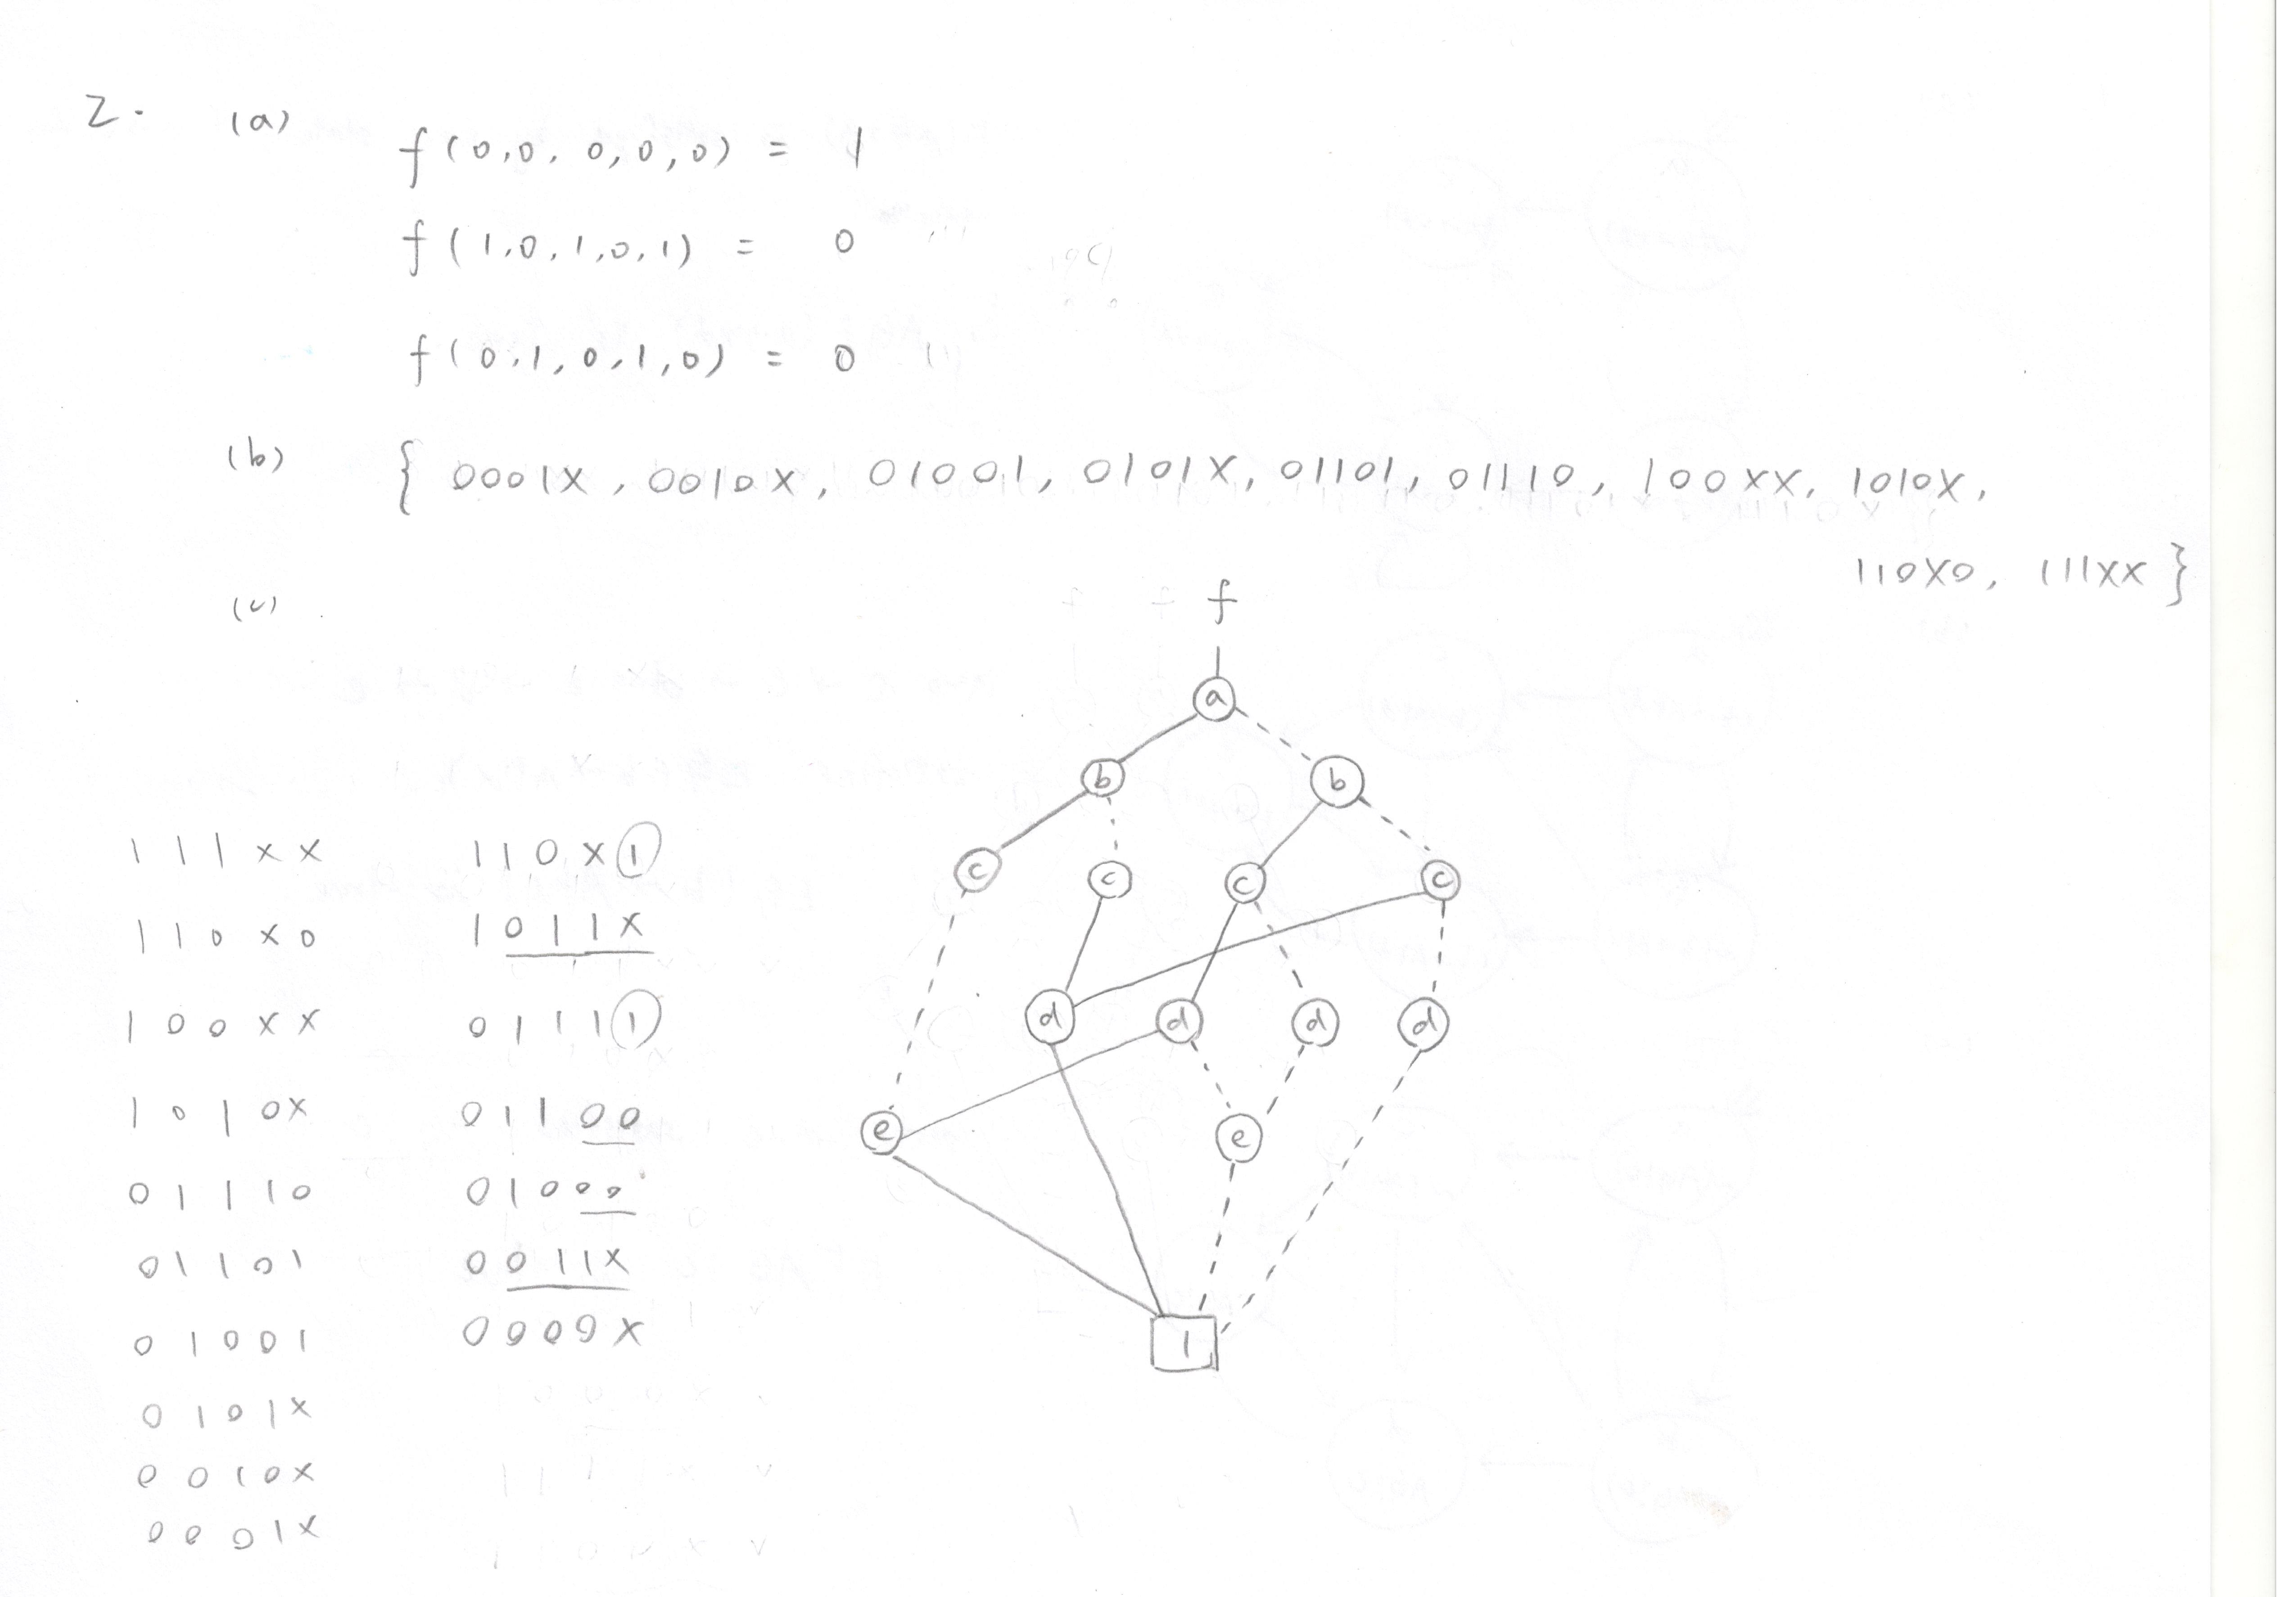 2. (a)
f(0,0,0,0,0) = 1
f(1,0,1,0,1) = 0
f(0,1,0,1,0) = 0
(b) { 0001X, 0010X, 01001, 0101X, 01101, 01110, 100XX, 1010X,
110X0, 111XX }
(c)
f
a
b b
c c c c
d d d d
e e
1
111XX 110X1
110X0 1011X
100XX 01111
1010X 01100
01110 01000
01101 0011X
01001 0000X
0101X
0010X
0001X